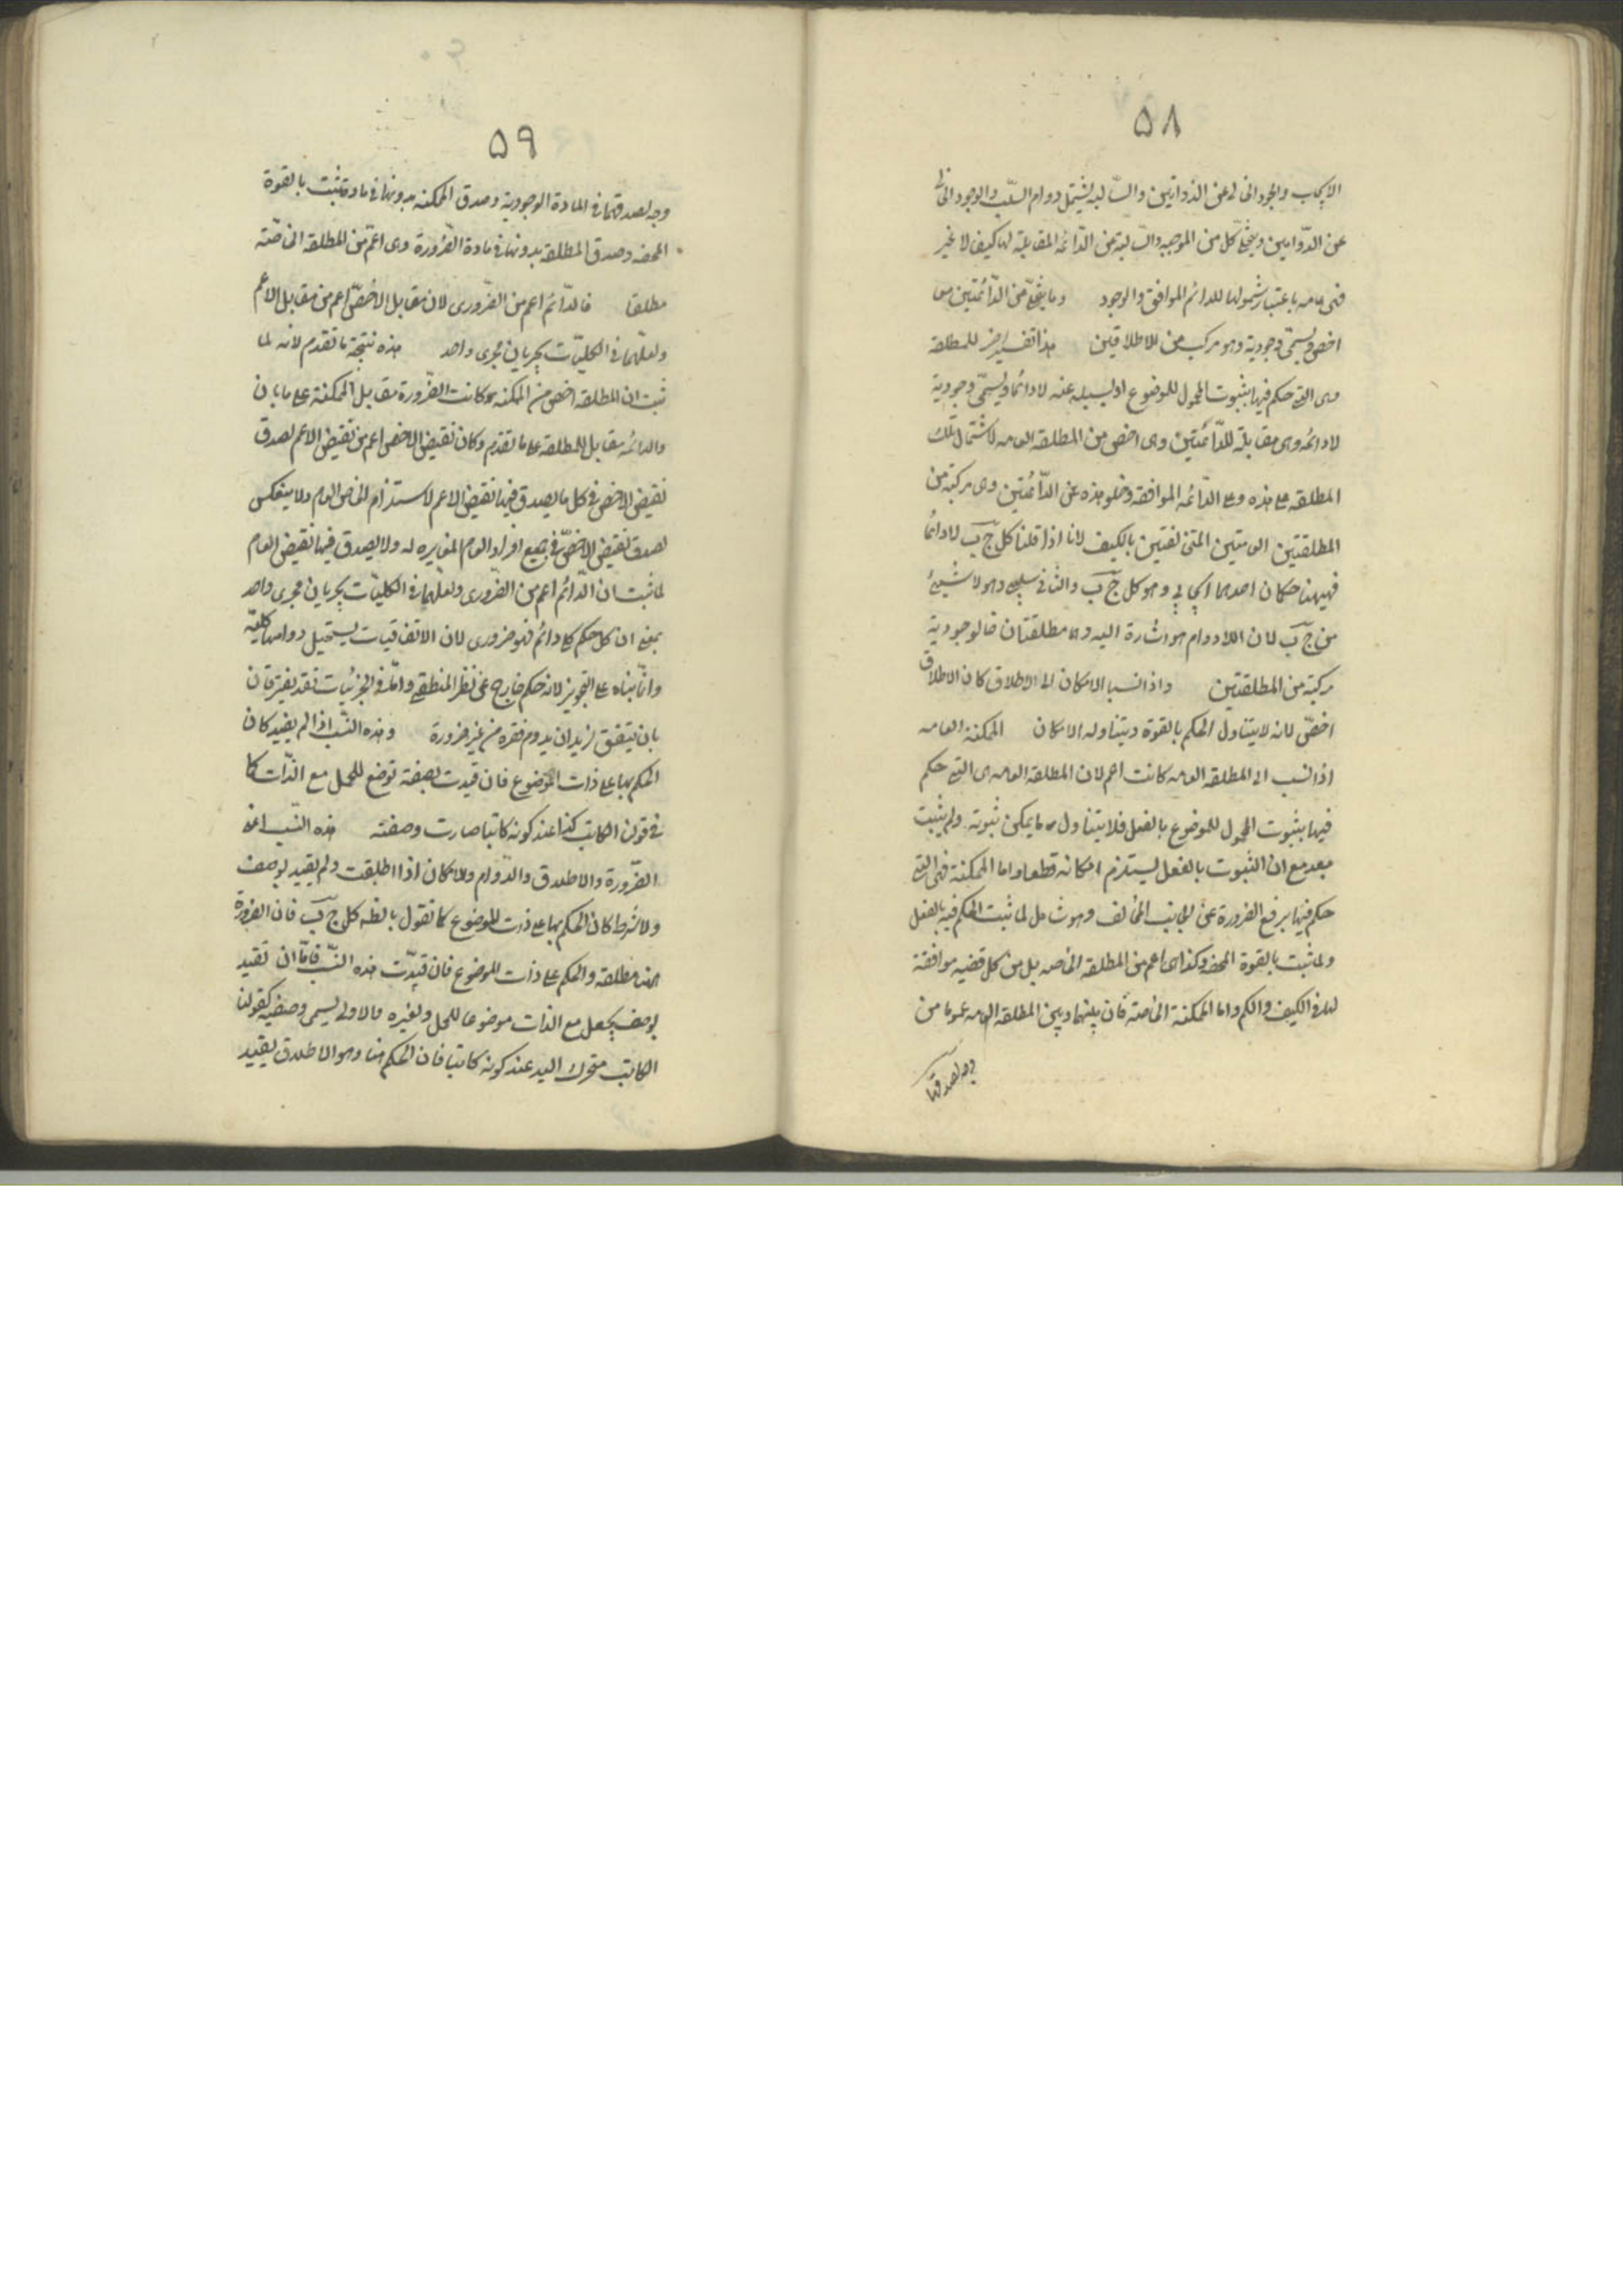 ٥٨
الايجاب والوجود الخالى عن الدوامين والسالبه يشتمل دوام السلب والوجود الخالى
عن الدوامين ويخلو كل من الموجبه والسالبة عن الدائمه المقابلة لها كيف لا غير
فهى عامه باعتبار شمولها للدائم الموافق والوجود وما يخلو عن الدائمتين معا
اخص ويسمى وجودية وهو مركب من الاطلاقين هذا تفسير اخر للمطلقة
وهى التى حكم فيها بثبوت المحمول للموضوع او بسلبه عنه لا دائما ويسمى وجودية
لا دائمه وهى مقابلة للدائمتين وهى اخص من المطلقه العامه لاشتمال تلك
المطلقه على هذه وعلى الدائمه الموافقه وخلو هذه عن الدائمتين وهى مركبة من
المطلقتين العامتين المتخالفتين بالكيف لانا اذا قلنا كل ج ب لا دائما
فههنا حكمان احدهما ايجابى وهو كل ج ب والثانى سلبى وهو لا شىء
من ج ب لان اللادوام هو اشارة اليه وهما مطلقتان فالوجودية
مركبة من المطلقتين واذا نسب الامكان الى الاطلاق كان الاطلاق
اخص لانه لا يتناول الحكم بالقوة ويتناوله الامكان الممكنة العامه
اذا نسب الى المطلقه العامه كانت اعم لان المطلقه العامه هى التى حكم
فيها بثبوت المحمول للموضوع بالفعل فلا يتناول ما يمكن ثبوته ولم يثبت
بعد مع ان الثبوت بالفعل يستلزم امكانه قطعا واما الممكنة فهى التى
حكم فيها برفع الضرورة عن الجانب المخالف وهو شامل لما ثبت الحكم فيه بالفعل
ولما ثبت بالقوة المحضه وكذا هى اعم من المطلقه الخاصه بل من كل قضيه موافقة
لها فى الكيف والكم واما الممكنة الخاصة فان بينها وبين المطلقه العامه عموما من
وجه لصدقهما
٥٩
وجه لصدقهما فى المادة الوجودية وصدق الممكنه بدونها فى مادة ثبت بالقوة
المحضه وصدق المطلقه بدونها فى مادة الضرورة وهى اعم من المطلقة الخاصة
مطلقا فالدائم اعم من الضرورى لان مقابل الاخص اعم من مقابل الاعم
ولعلهما فى الكليات يجريان مجرى واحد هذه نتيجة ما تقدم لانه لما
ثبت ان المطلقه اخص من الممكنه وكانت الضرورة مقابل الممكنة على ما بان
والدائمه مقابل للمطلقه على ما تقدم وكان نقيض الاخص اعم من نقيض الاعم لصدق
نقيض الاخص فى كل ما يصدق فيها نقيض الاعم لاستلزام الخاص العام ولا ينعكس
لصدق نقيض الاخص فى جميع افراد العام المغايره له ولا يصدق فيها نقيض العام
لما ثبت ان الدائم اعم من الضرورى ولعلهما فى الكليات يجريان مجرى واحد
بمعنى ان كل حكم كلى دائم فهو ضرورى لان الاتفاقيات يستحيل دوامها كلية
وانما بناه على التجويز لانه حكم خارج عن نظر المنطقى واما فى الجزئيات فقد يفترقان
بان يتفق لزيد ان يدوم فقره من غير ضرورة وهذه النسب اذا لم يقيد كان
الحكم بها على ذات الموضوع فان قيدت بصفة توضع للحمل مع الذات كما
فى قولنا الكاتب كذا عند كونه كاتبا صارت وصفته هذه النسب اعنى
الضرورة والاطلاق والدوام والامكان اذا اطلقت ولم يقيد بوصف
ولا شرط كان الحكم بها على ذات الموضوع كما نقول بالضروره كل ج ب فان الضرورة
هنا مطلقه والحكم على ذات الموضوع فان قيدت هذه النسب فاما ان تقيد
بوصف يجعل مع الذات موضوعا للحمل ولغيره والاولى يسمى وصفيه كقولنا
الكاتب متحرك اليد عند كونه كاتبا فان الحكم هنا وهو الاطلاق يقيد